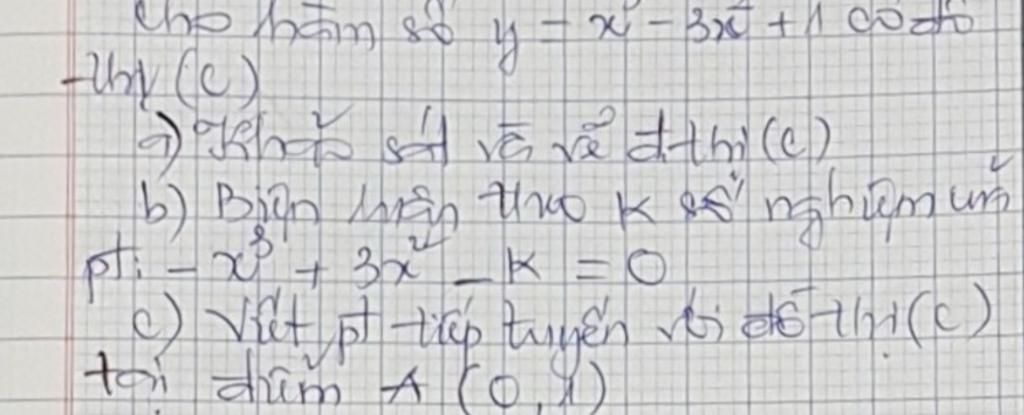 Cho hàm số y = x³ - 3x² + 1 có đồ
thị (C)
a) Khảo sát và vẽ đ.thị (C)
b) Biện luận theo K số nghiệm của
pt: - x³ + 3x² - K = 0
c) Viết pt tiếp tuyến với đồ thị (C)
tại điểm A (0, 1)